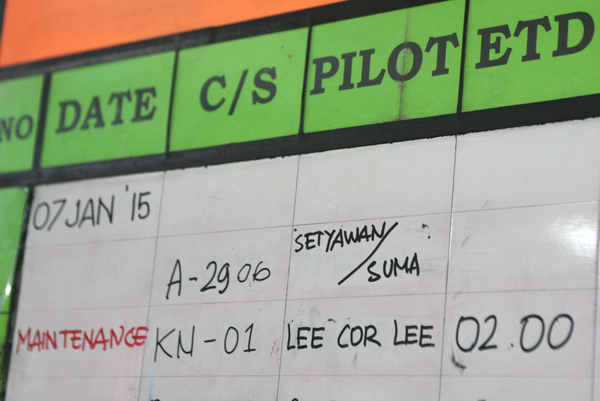 NO DATE C/S PILOT ETD
07 JAN '15
A-2906 SETYAWAN/
SUMA
MAINTENANCE KN-01 LEE COR LEE 02.00